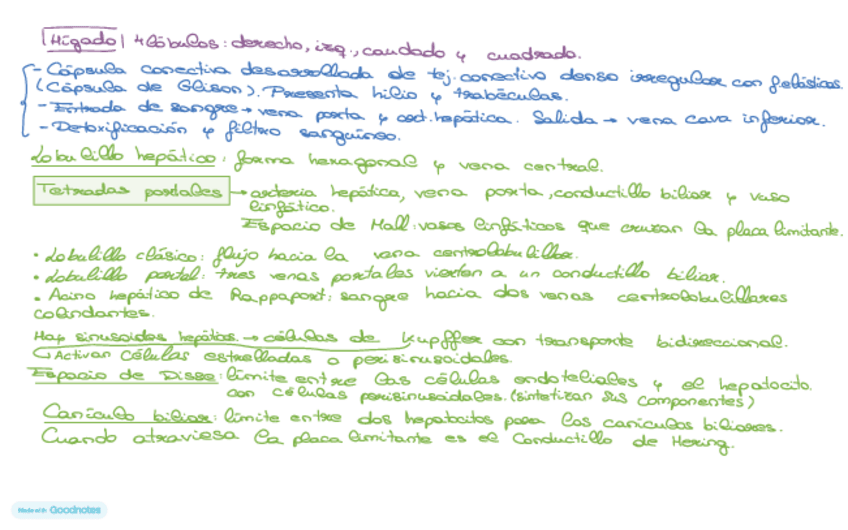 Hígado 4 lóbulos: derecho, izq., caudado y cuadrado.
- Cápsula conectiva desarrollada de tej. conectivo denso irregular con f. elásticas
(Cápsula de Glison). Presenta hilio y trabéculas.
- Entrada de sangre → vena porta y art. hepática. Salida → vena cava inferior.
- Detoxificación y filtro sanguíneo.
Lobulillo hepático: forma hexagonal y vena central.
Tetradas portales → arteria hepática, vena porta, conductillo biliar y vaso
linfático.
Espacio de Mall: vasos linfáticos que cruzan la placa limitante.
• Lobulillo clásico: flujo hacia la vena centrolobulillar.
• Lobulillo portal: tres venas portales vierten a un conductillo biliar.
• Acino hepático de Rappaport: sangre hacia dos venas centrolobulillares
colindantes.
Hay sinusoides hepátias → células de Kupffer con transporte bidireccional.
↳ Activan células estrelladas o perisinusoidales.
Espacio de Disse: límite entre las células endoteliales y el hepatocito.
con células perisinusoidales. (sintetizan sus componentes)
Canículo biliar: límite entre dos hepatocitos para los canículos biliares.
Cuando atraviesa la placa limitante es el Conductillo de Hering.
Made with Goodnotes